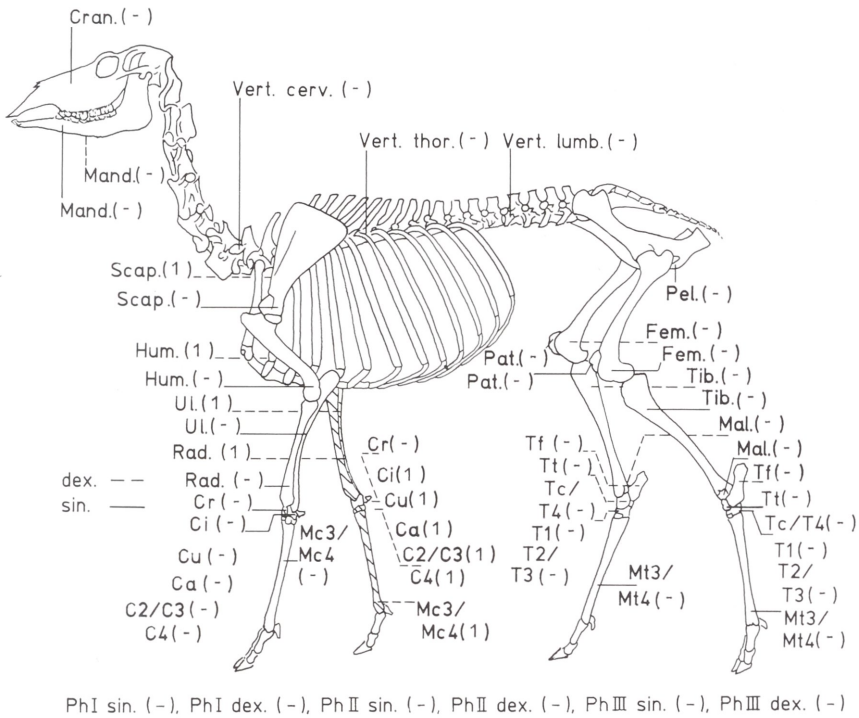 Cran.(-)
Vert. cerv. (-)
Vert. thor.(-) Vert. lumb.(-)
Mand.(-)
Mand.(-)
Scap.(1)
Scap.(-)
Pel.(-)
Hum.(1)
Hum.(-)
Ul.(1)
Ul.(-)
Rad. (1)
Rad. (-)
Cr(-)
Ci(-)
Cu(-)
Ca(-)
C2/C3(-)
C4(-)
dex. – –
sin. —
Mc3/
Mc4
(-)
Cr(-)
Ci(1)
Cu(1)
Ca(1)
C2/C3(1)
C4(1)
Mc3/
Mc4(1)
Fem.(-)
Fem.(-)
Pat.(-)
Pat.(-)
Tib.(-)
Tib.(-)
Mal.(-)
Mal.(-)
Tf(-)
Tt(-)
Tc/
T4(-)
T1(-)
T2/
T3(-)
Mt3/
Mt4(-)
Tf(-)
Tt(-)
Tc/T4(-)
T1(-)
T2/
T3(-)
Mt3/
Mt4(-)
PhI sin. (-), PhI dex. (-), PhII sin. (-), PhII dex. (-), PhIII sin. (-), PhIII dex. (-)